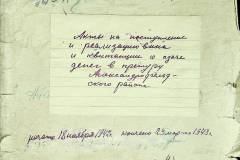 Акты на поступление
и реализацию вина
и квитанции о сдаче
денег в претуру
Александрфельд-
ского района
начато 18 ноября 1942г. кончено 29 марта 1943г.